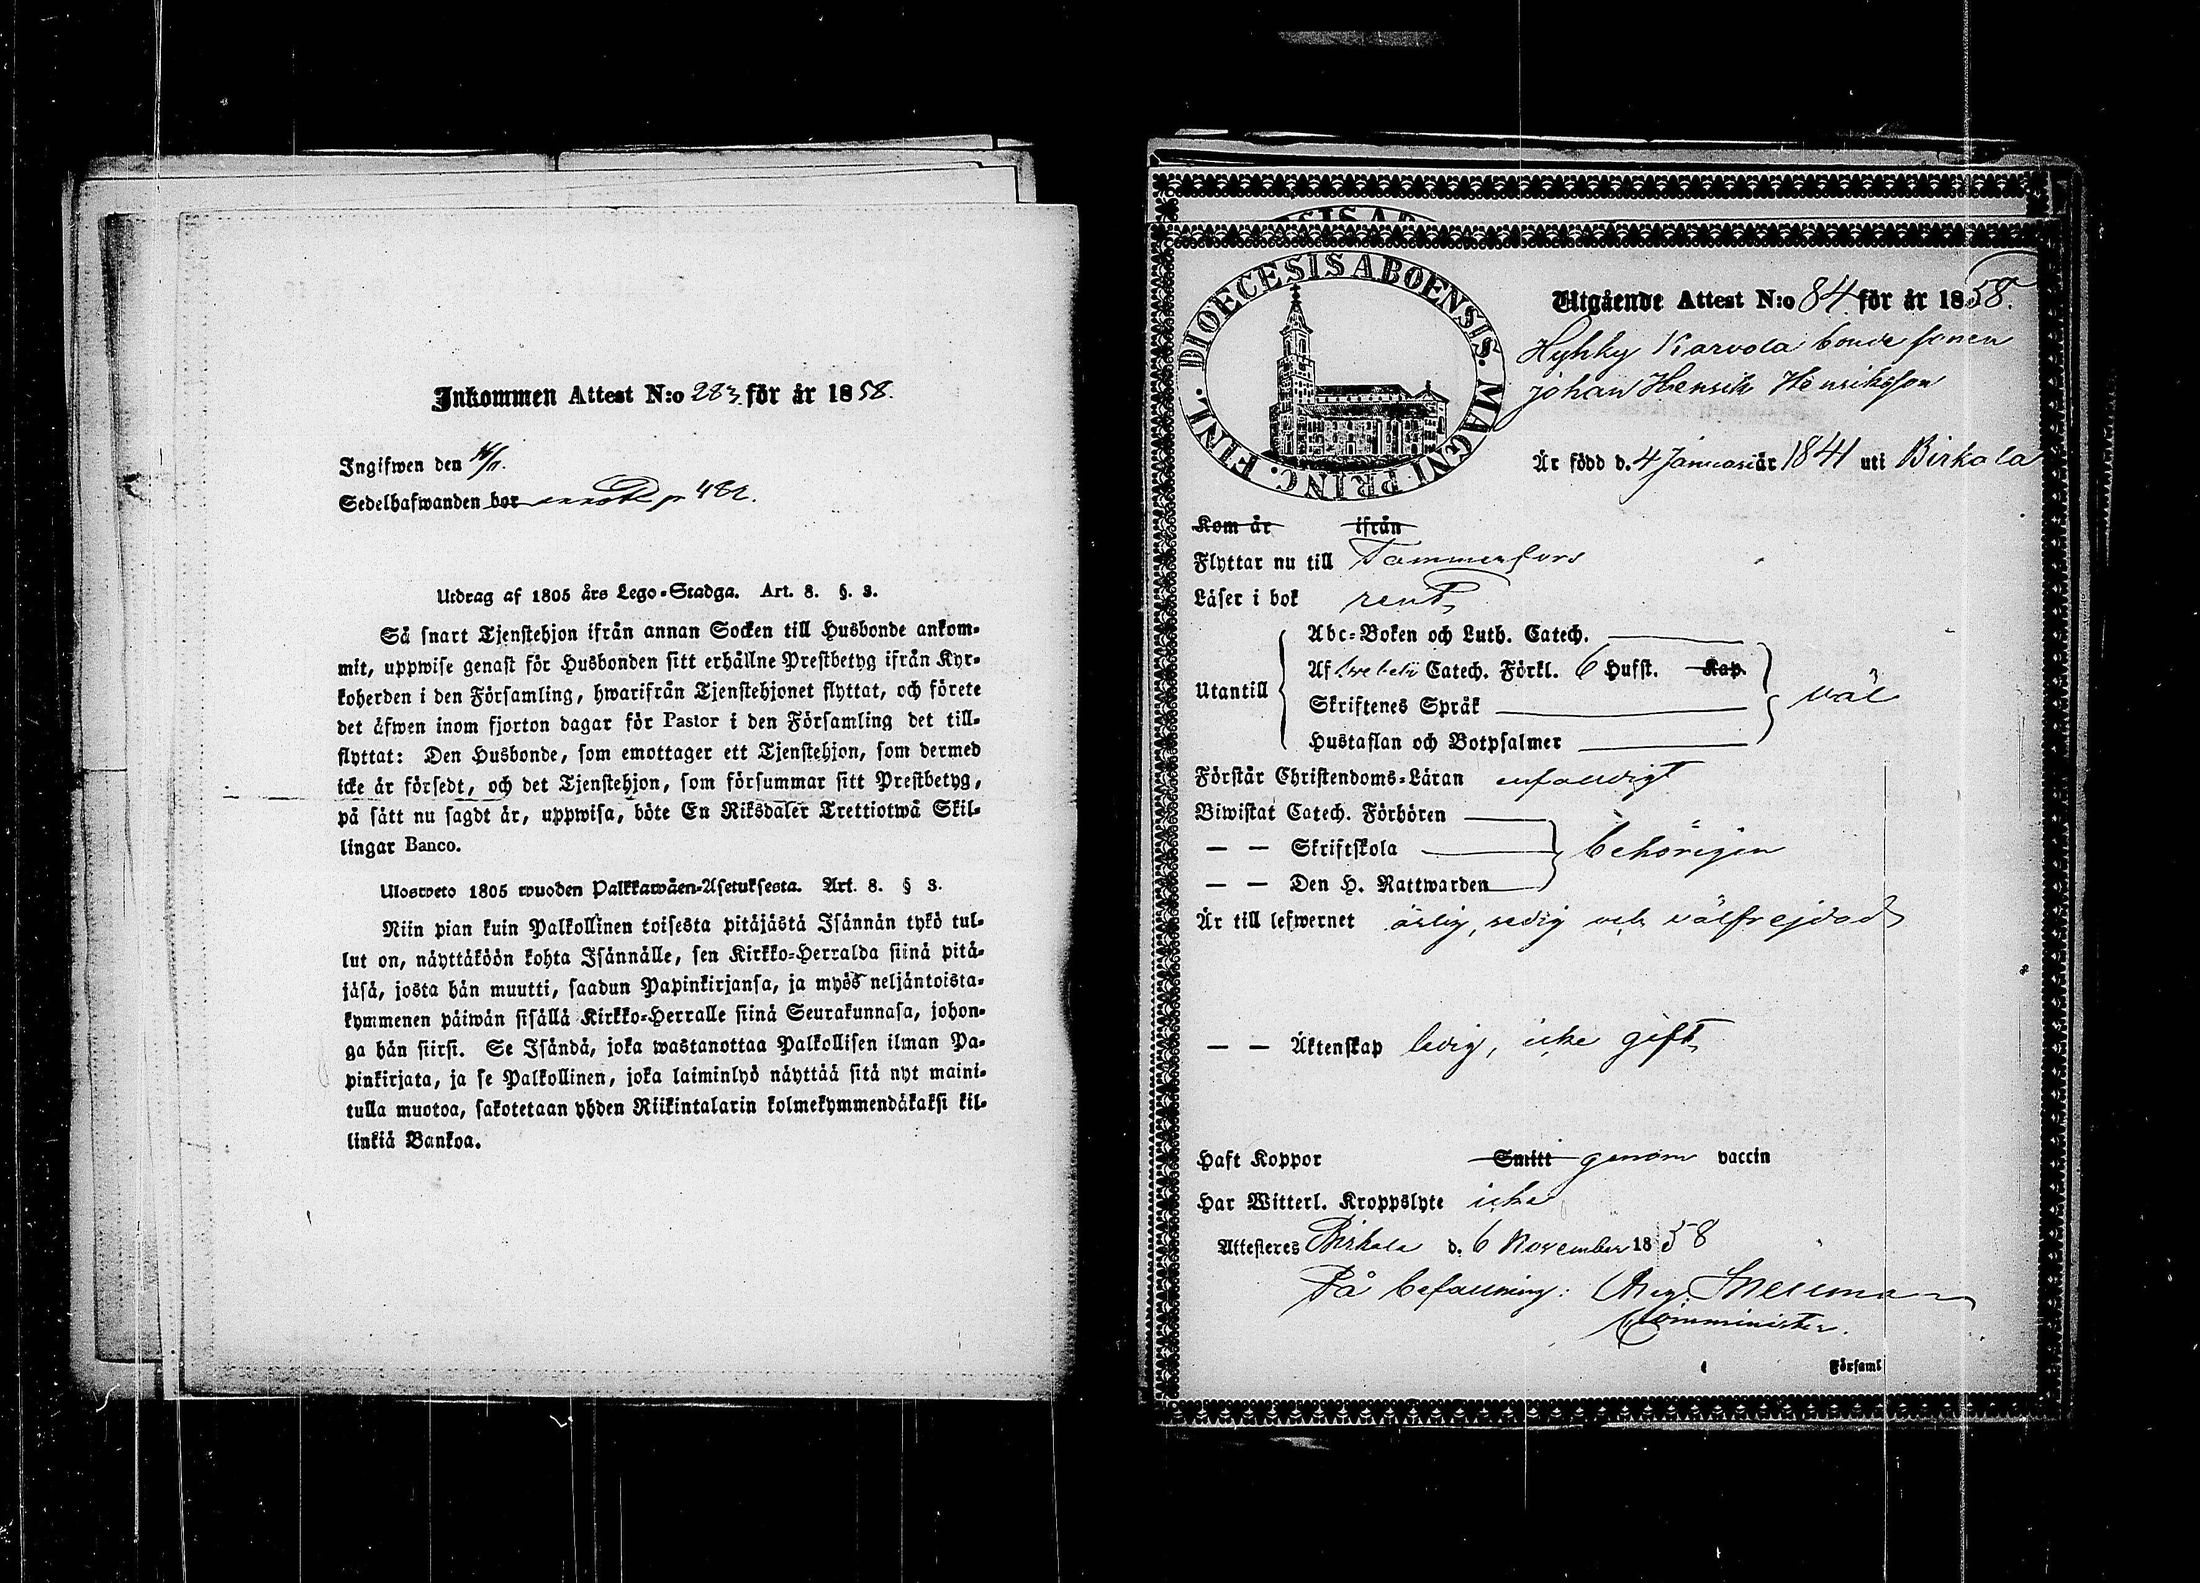 Inkommen Attest N:o 283. för år 1858.
Ingifwen den
Sedelhafwanden bor p 482.
Utdrag af 1805 års Lego-Stadga. Art. 8. §. 3.
Så snart Tjenstehjon ifrån annan Socken till Husbonde ankom-
mit, uppwise genast för Husbonden sitt erhållne Prestbetyg ifrån Kyr-
koherden i den Församling, hwarifrån Tjenstehjonet flyttat, och förete
det äfwen inom fjorton dagar för Pastor i den Församling det till-
flyttat: Den Husbonde, som emottager ett Tjenstehjon, som dermed
icke är försedt, och det Tjenstehjon, som försummar sitt Prestbetyg,
på sätt nu sagdt är, uppwisa, böte En Riksdaler Trettiotwå Skil-
lingar Banco.
Ulosweto 1805 wuoden Palkkawäen-Asetuksesta. Art. 8. § 3.
Niin pian kuin Palkollinen toisesta pitäjästä Isännän tykö tul-
lut on, näyttäköön kohta Isännälle, sen Kirkko-Herralda siinä pitä-
jäsä, josta hän muutti, saadun Papinkirjansa, ja myös neljäntoista-
kymmenen päiwän sisällä Kirkko-Herralle siinä Seurakunnasa, johon-
ga hän siirsi. Se Isändä, joka wastanottaa Palkollisen ilman Pa-
pinkirjata, ja se Palkollinen, joka laiminlyö näyttää sitä nyt maini-
tulla muotoa, sakotetaan yhden Riikintalarin kolmekymmendäkaksi kil-
linkiä Bankoa.
DIOECESIS ABOENSIS. MAGNI PRINC. FINL.
Utgående Attest N:o 84 för år 1858.
Hyhky Karvola bonde sonen
Johan Henrik Henriksson
Är född d. 4 Januari år 1841 uti Birkala
Kom år ifrån
Flyttar nu till Tammerfors
Läser i bok rent
Utantill
Abc-Boken och Luth. Catech.
Af Svebelii Catech. Förkl. 6 Hufst. Kap.
Skriftenes Språk
Hustaflan och Botpsalmer
väl
Förstår Christendoms-Läran enfaldigt
Biwistat Catech. Förhören
— — Skriftskola
— — Den H. Nattwarden
behörigen
Är till lefwernet ärlig, redig och välfrejdad
— — Äktenskap ledig, icke gift
Haft Koppor Smitt genom vaccin
Har Witterl. Kroppslyte icke
Attesteres Birkala d. 6 November 1858
På befallning: Aug. Snellman
Comminister.
Församl